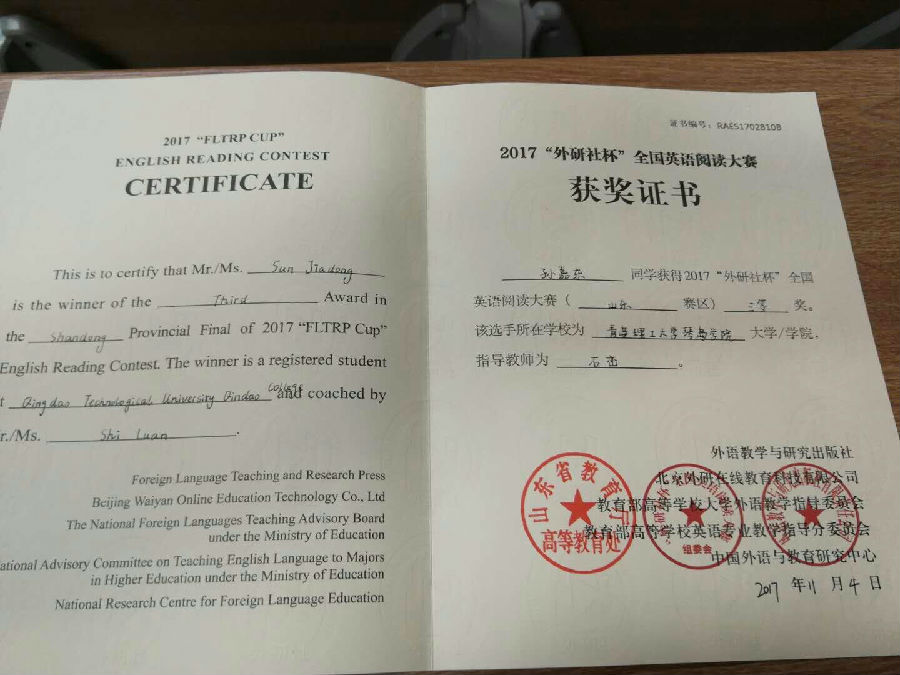 2017 "FLTRP CUP"
ENGLISH READING CONTEST
CERTIFICATE
This is to certify that Mr./Ms. Sun Jiadong
is the winner of the Third Award in
the Shandong Provincial Final of 2017 "FLTRP Cup"
English Reading Contest. The winner is a registered student
Qingdao Technological University Qindao College and coached by
r./Ms. Shi Luan.
Foreign Language Teaching and Research Press
Beijing Waiyan Online Education Technology Co., Ltd
The National Foreign Languages Teaching Advisory Board
under the Ministry of Education
National Advisory Committee on Teaching English Language to Majors
in Higher Education under the Ministry of Education
National Research Centre for Foreign Language Education
证书编号：RAES1702810B
2017 “外研社杯” 全国英语阅读大赛
获奖证书
孙嘉东 同学获得2017 “外研社杯” 全国
英语阅读大赛（ 山东 赛区） 三等 奖。
该选手所在学校为 青岛理工大学琴岛学院 大学/学院，
指导教师为 石峦 。
外语教学与研究出版社
北京外研在线教育科技有限公司
教育部高等学校大学外语教学指导委员会
教育部高等学校英语专业教学指导分委员会
中国外语与教育研究中心
2017 年 11 月 4 日
山东省教育厅
高等教育处
组委会